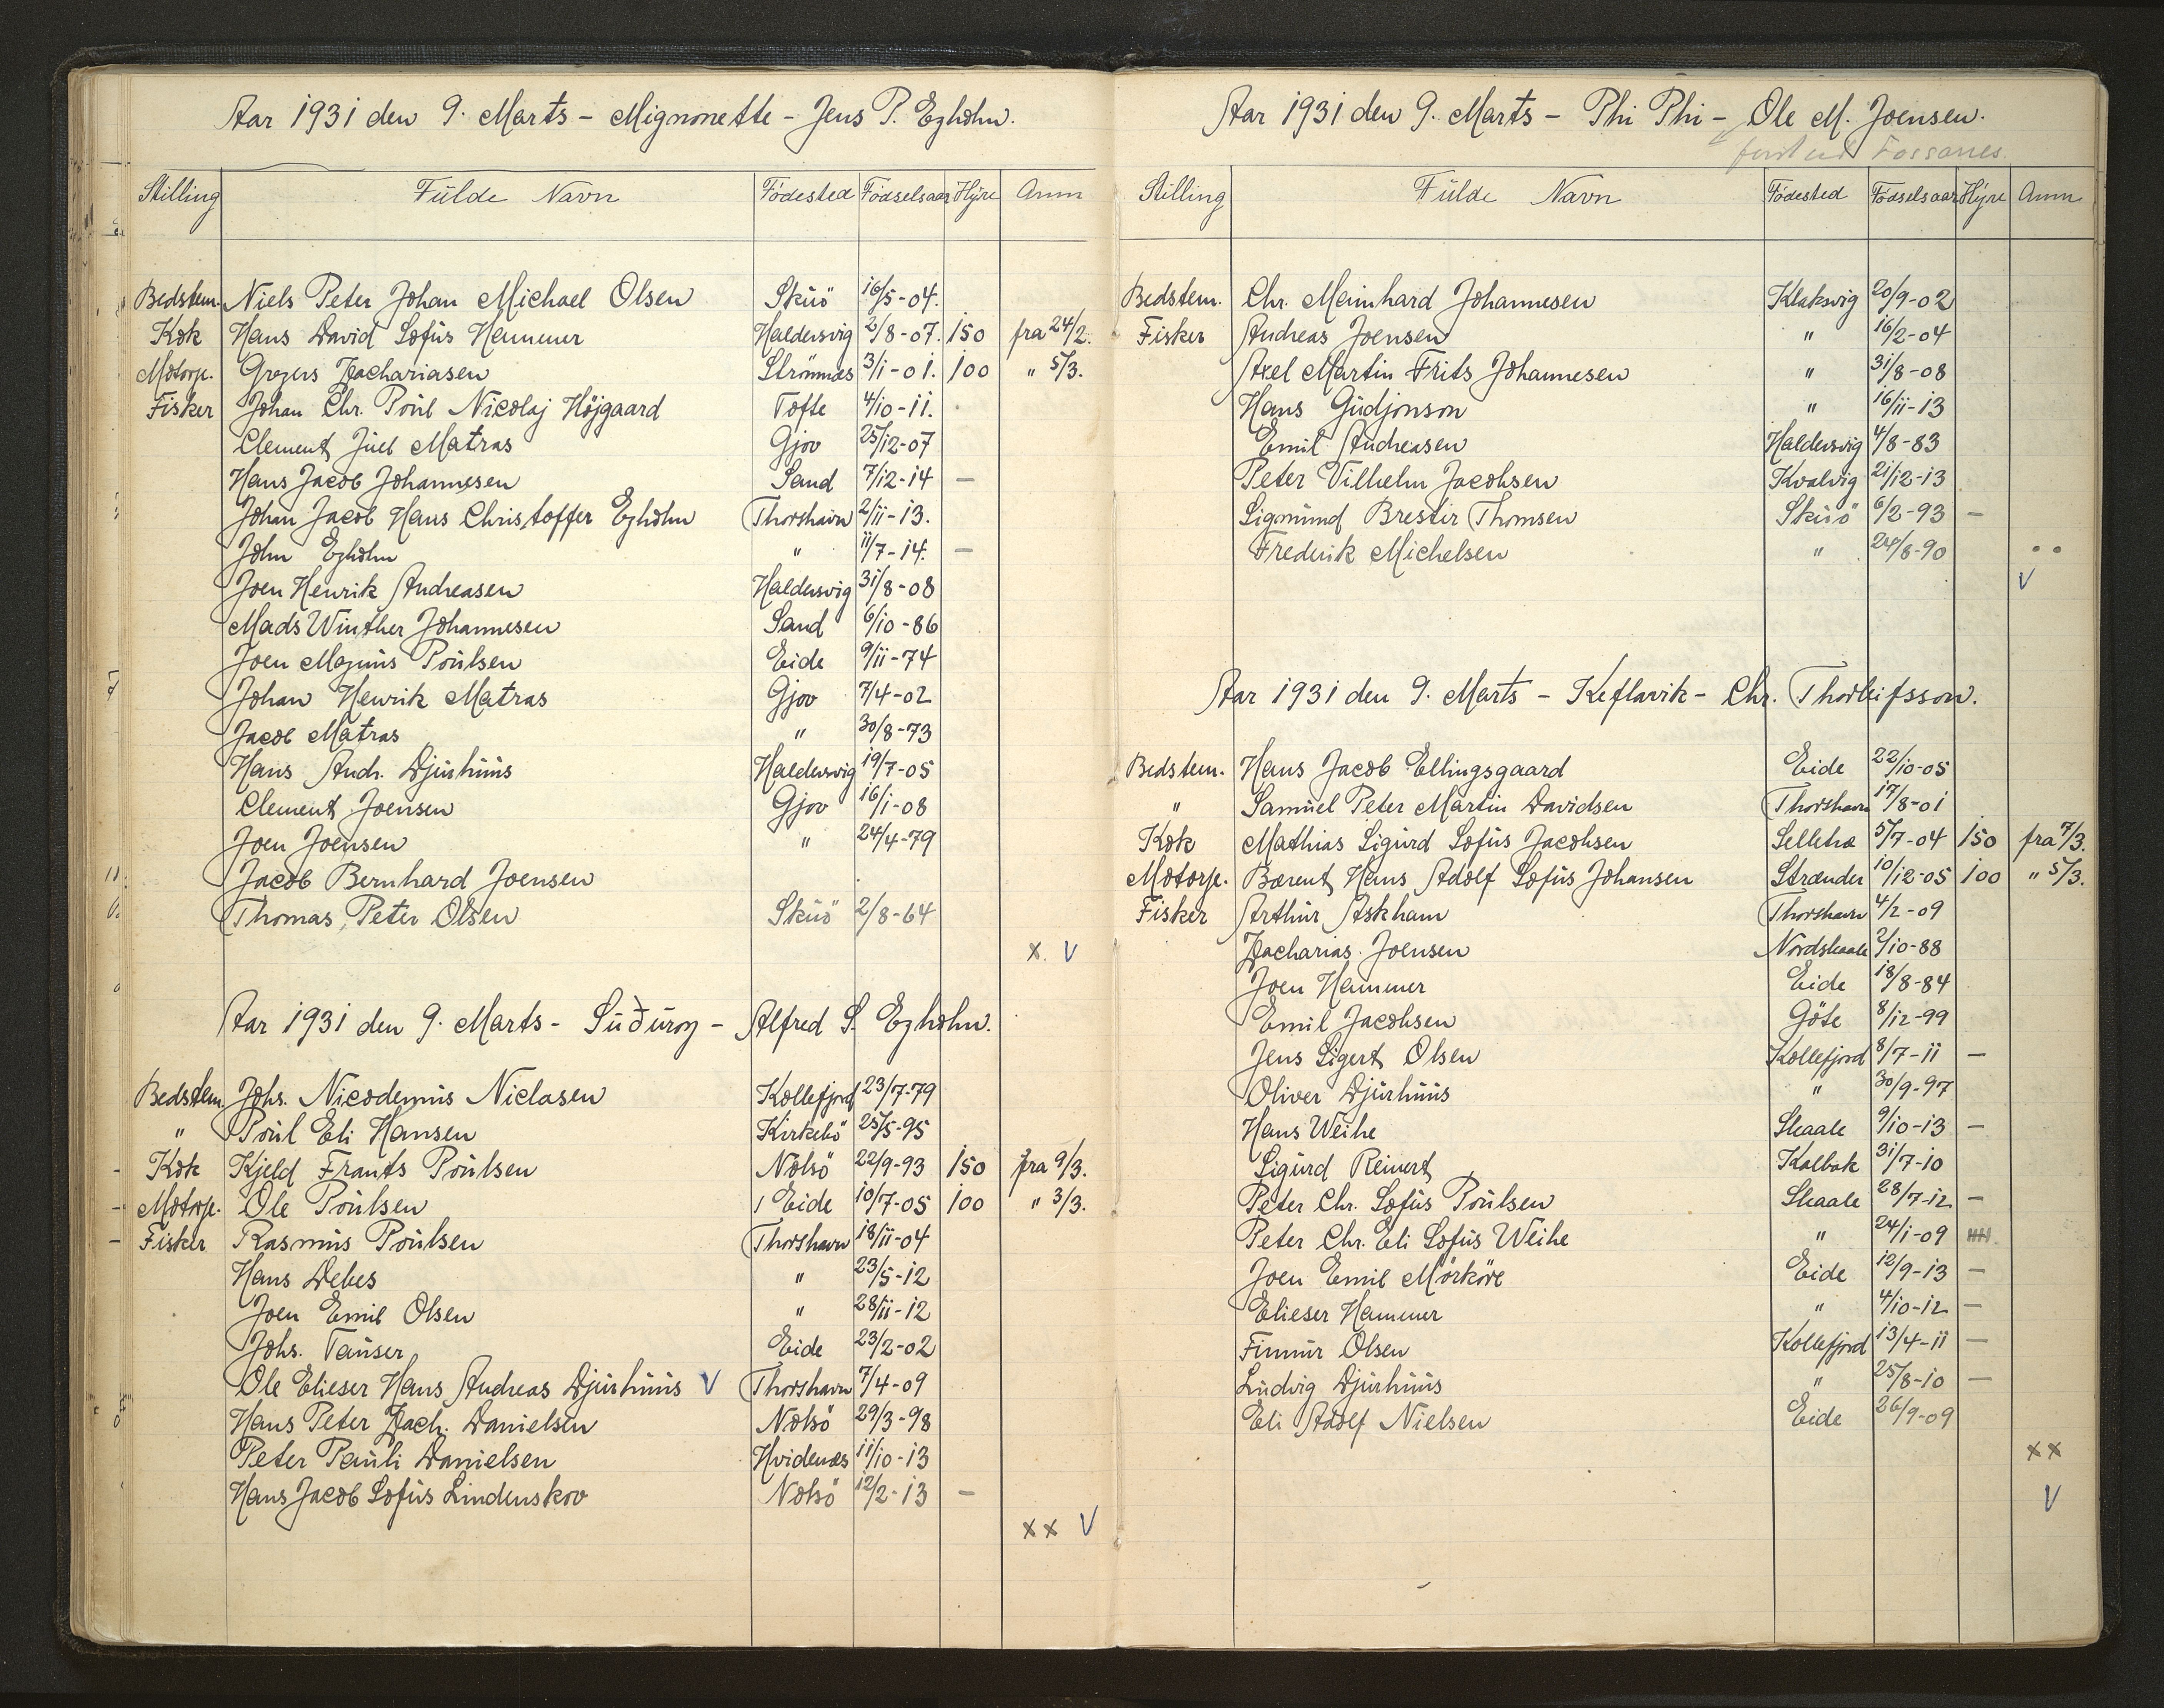 Aar 1931 den 9. Marts - Mignonette - Jens P. Egholm.
Stilling Fulde Navn Födested Födselsaar Hyre Anm
Bedstem. Niels Peter Johan Michael Olsen Skuö 16/5-04.
Kok Hans David Sofus Hammer Haldersvig 2/8-07. 150 fra 24/2.
Motorp. Gregers Zachariasen Strömnæs 3/1-01. 100 " 5/3.
Fisker Johan Chr. Poul Nicolaj Höjgaard Tofte 4/10-11.
Clement Juel Matras Gjov 25/12-07
Hans Jacob Johannesen Sand 7/12-14 —
Johan Jacob Hans Christoffer Egholm Thorshavn 2/11-13.
John Egholm " 11/7-14. —
Joen Henrik Andreasen Haldersvig 31/8-08
Mads Winther Johannesen Sand 6/10-86
Joen Magnus Poulsen Eide 9/11-74
Johan Henrik Matras Gjov 7/4-02
Jacob Matras " 30/8-73
Hans Andr. Djurhuus Haldersvig 19/7-05
Clement Joensen Gjov 16/1-08
Joen Joensen " 24/4-79
Jacob Bernhard Joensen
Thomas Peter Olsen Skuö 2/8-64
x. V
Aar 1931 den 9. Marts - Suðuroy - Alfred S. Egholm.
Bedstem. Johs. Nicodemus Niclasen Kollefjord 23/7-79
" Poul Eli Hansen Kirkebö 25/5-95
Kok Kjeld Frants Poulsen Nolsö 22/9-93 150 fra 9/3.
Motorp. Ole Poulsen Eide 10/7-05 100 " 3/3.
Fisker Rasmus Poulsen Thorshavn 18/11-04
Hans Debes " 23/5-12
Joen Emil Olsen " 28/11-12
Johs. Tauser Eide 23/2-02
Ole Elieser Hans Andreas Djurhuus V Thorshavn 7/4-09
Hans Peter Zach. Danielsen Nolsö 29/3-98
Peter Pauli Danielsen Hvidenæs 11/10-13
Hans Jacob Sofus Lindenskov Nolsö 12/2-13 —
xx V
Aar 1931 den 9. Marts - Phi Phi - Ole M. Joensen.
Fossanes
Stilling Fulde Navn Födested Födselsaar Hyre Anm
Bedstem. Chr. Meinhard Johannesen Klaksvig 20/9-02
Fisker Andreas Joensen " 16/2-04
Axel Martin Frits Johannesen " 31/8-08
Hans Gudjonson " 16/11-13
Emil Andreasen Haldersvig 4/8-83
Peter Vilhelm Jacobsen Kvalvig 21/12-13
Sigmund Brestir Thomsen Skuö 6/2-93 —
Frederik Michelsen " 24/8-90
V
Aar 1931 den 9. Marts - Keflavik - Chr. Thorleifsson.
Bedstem. Hans Jacob Ellingsgaard Eide 22/10-05
" Samuel Peter Martin Davidsen Thorshavn 17/8-01
Kok Mathias Sigurd Sofus Jacobsen Selletræ 5/7-04 150 fra 7/3.
Motorp. Barent Hans Adolf Sofus Johansen Strænder 10/12-05 100 " 5/3.
Fisker Arthur Askham Thorshavn 4/2-09
Zacharias. Joensen Nordskaale 2/10-88
Joen Hammer Eide 18/8-84
Emil Jacobsen Göte 8/12-99
Jens Sigert Olsen Kollefjord 8/7-11 —
Oliver Djurhuus " 30/9-97
Hans Weihe Skaale 9/10-13 —
Sigurd Reinert Kalbak 31/7-10
Peter Chr. Sofus Poulsen Skaale 28/7-12 —
Peter Chr. Eli Sofus Weihe " 24/1-09
Joen Emil Mörköre Eide 12/9-13 —
Elieser Hammer " 4/10-12 —
Finnur Olsen Kollefjord 13/4-11 —
Ludvig Djurhuus " 25/8-10 —
Eli Adolf Nielsen Eide 26/9-09
xx
V